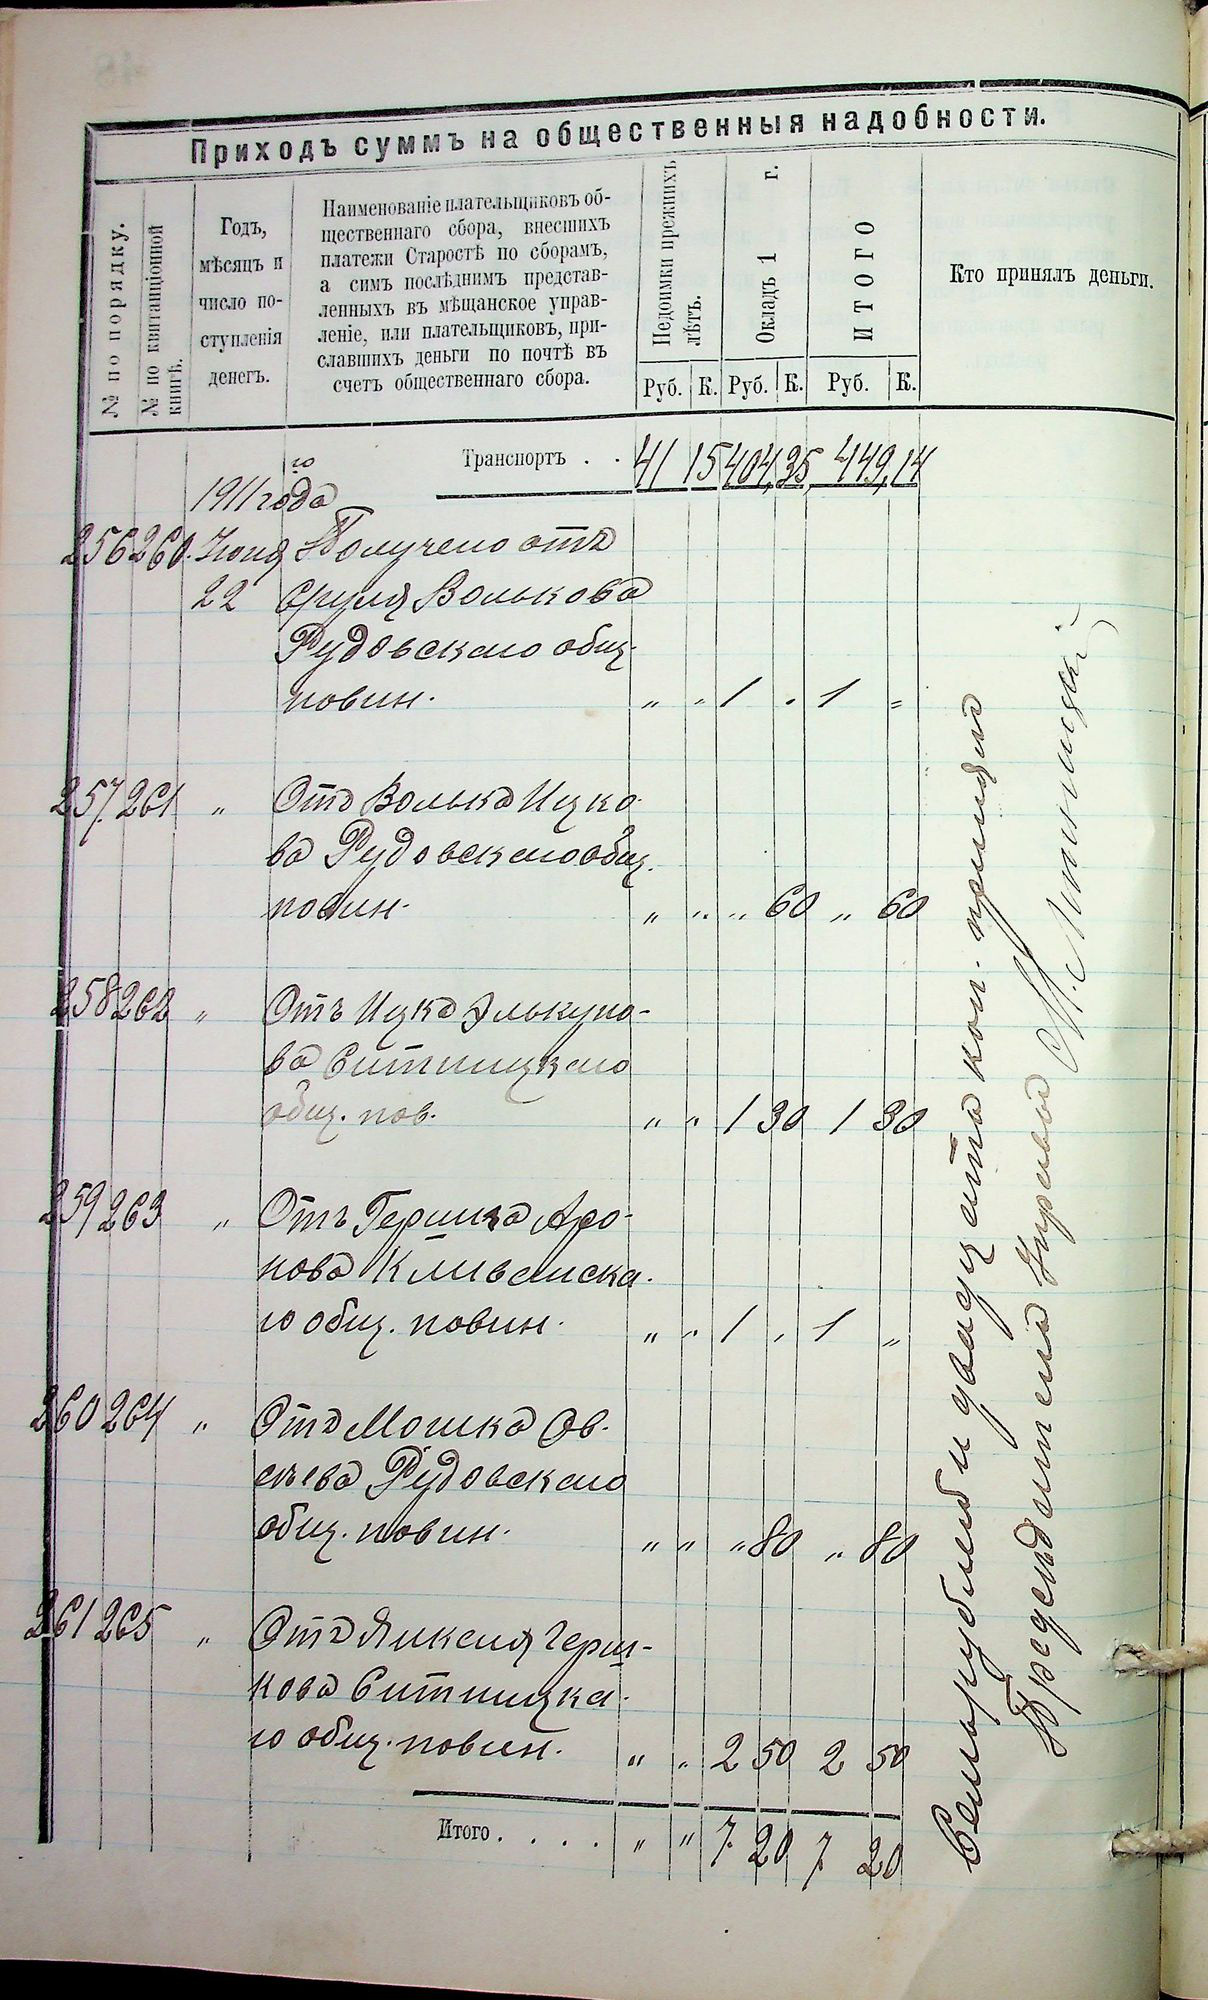 Приходъ суммъ на общественныя надобности.
№ по порядку.
№ по квитанціонной книгѣ.
Годъ,
мѣсяцъ и
число по-
ступленія
денегъ.
Наименованіе плательщиковъ об-
щественнаго сбора, внесшихъ
платежи Старостѣ по сборамъ,
а симъ послѣднимъ представ-
ленныхъ въ мѣщанское управ-
леніе, или плательщиковъ, при-
славшихъ деньги по почтѣ въ
счетъ общественнаго сбора.
Недоимки прежнихъ лѣтъ.
Окладъ 1 г.
ИТОГО
Кто принялъ деньги.
Руб. К. Руб. К. Руб. К.
Транспортъ . . 41 15 404, 35, 449, 14
1911 го года
256 260. Іюня Получено отъ
22 Сруля Волькова
Рудовскаго общ.
повин. " " 1 " 1 "
257. 261 " Отъ Волька Ицко-
ва Рудовскаго общ.
повин. " " " 60 " 60
258 262 " Отъ Ицка Элькуно-
ва Ситницкаго
общ. пов. " " 1 30 1 30
259 263 " Отъ Гершка Аро-
нова
го общ. повин. " " 1 " 1 "
260 264 " Отъ Мошка Ов-
сѣева Рудовскаго
общ. повин. " " " 80 " 80
261 265 " Отъ Янкеля Герш-
кова Ситницка-
го общ. повин. " " 2 50 2 50
Итого . . . . " " 7. 20 7. 20
Семь рублей и двадцать коп. принялъ
Предсѣдатель Управы